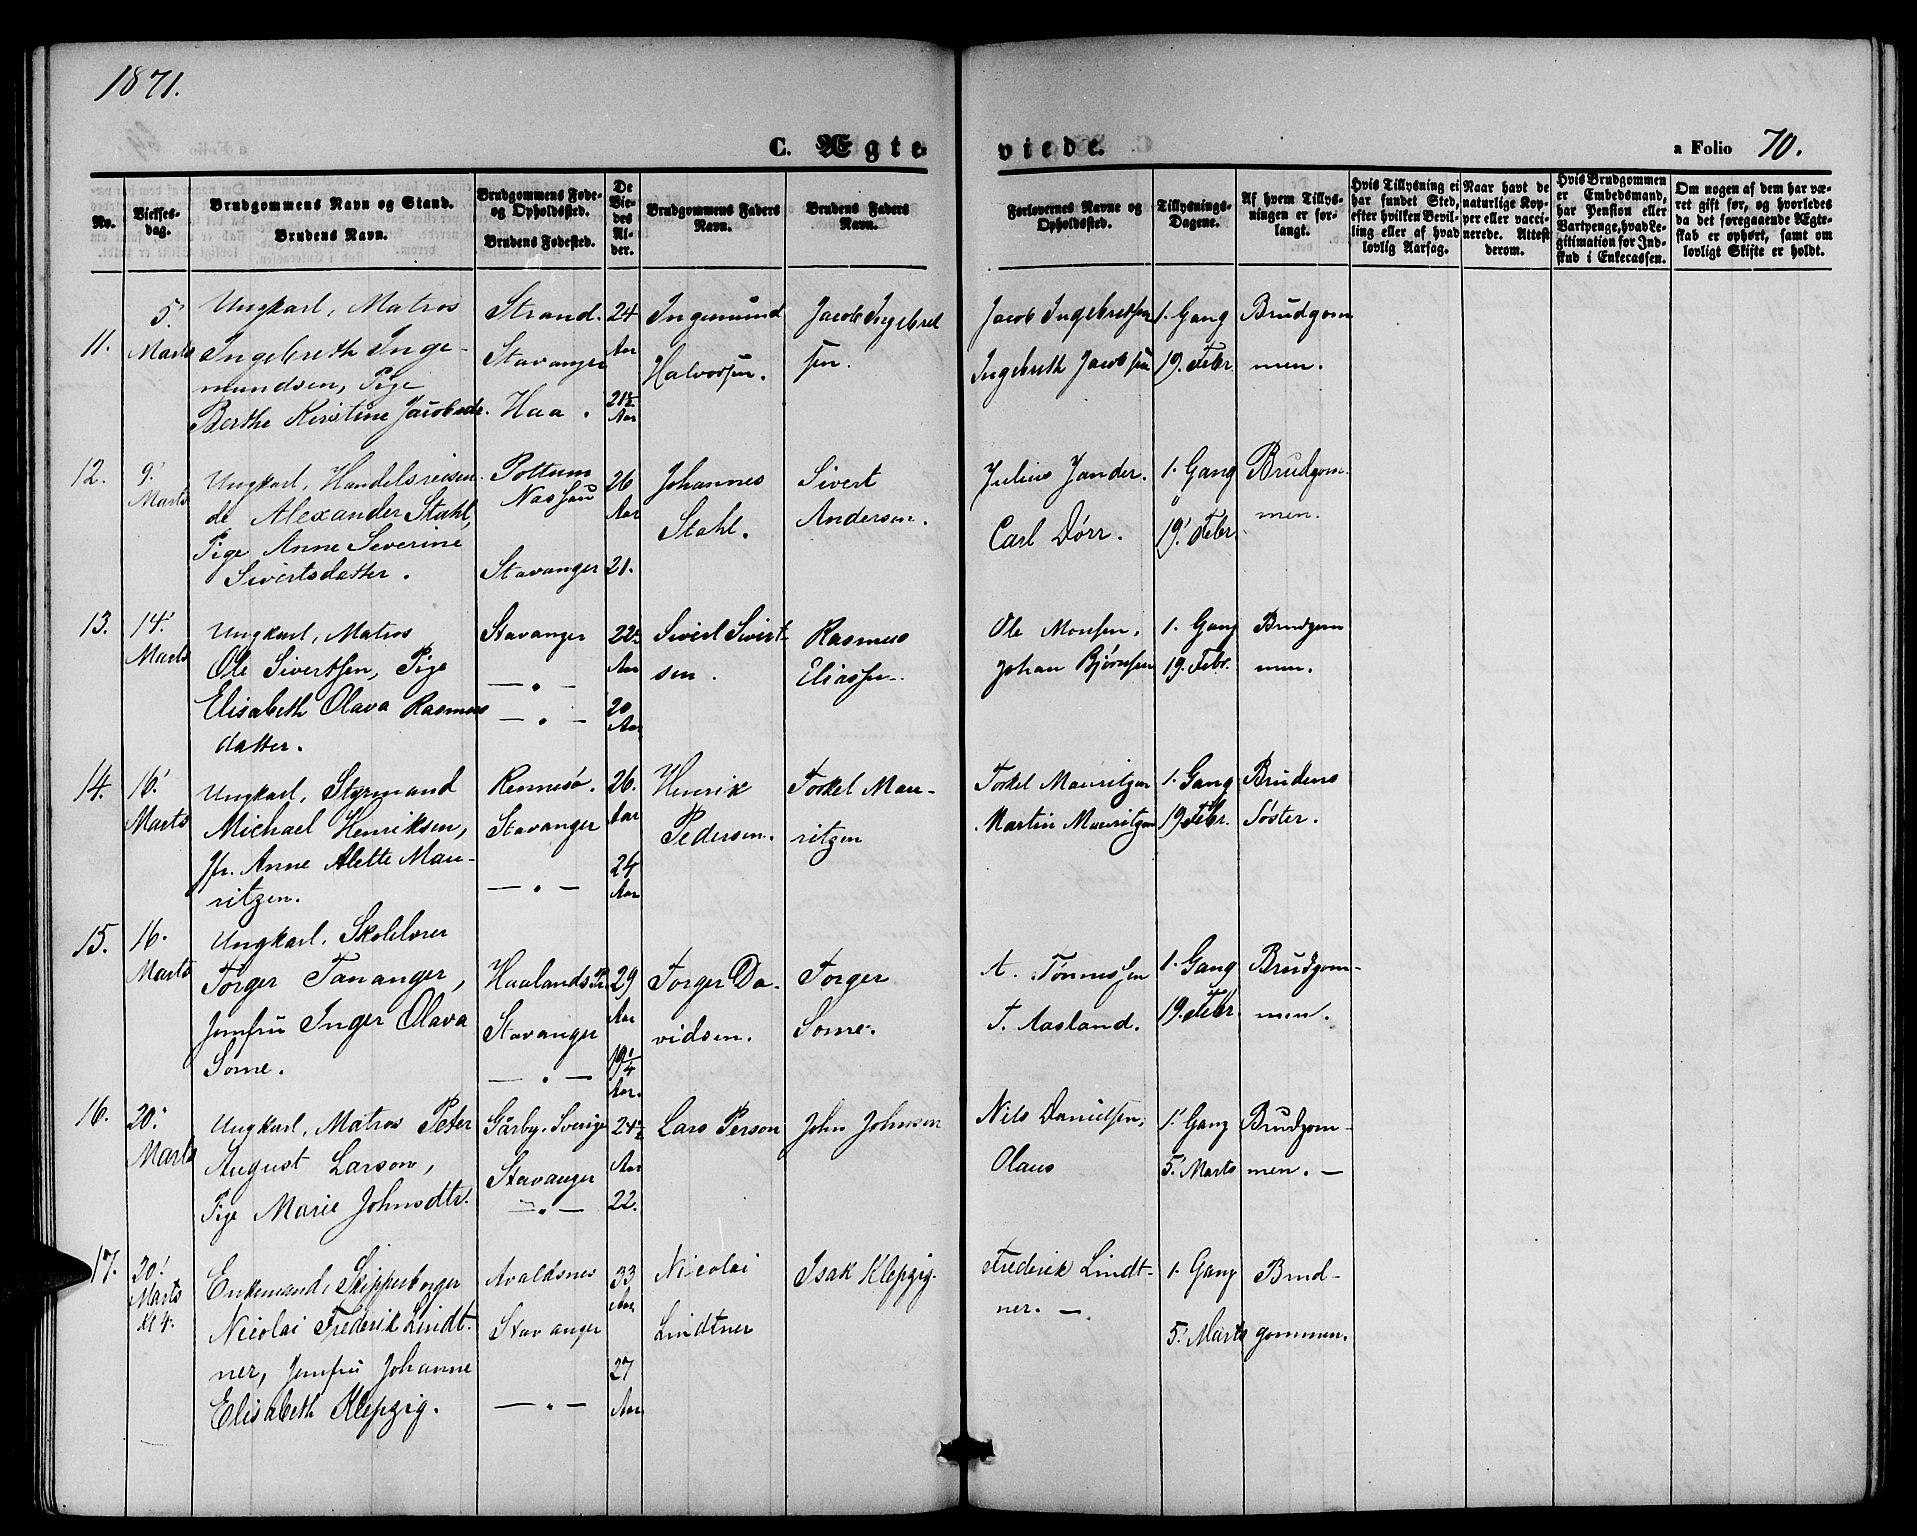 1871.
C. Ægteviede.
a Folio 70.
No.
Vielsesdag.
Brudgommens Navn og Stand.
Brudens Navn.
Brudgommens Føde- og Opholdssted.
Brudens Fødested.
De Viedes Alder.
Brudgommens Faders Navn.
Brudens Faders Navn.
Forlovernes Navne og Opholdssted.
Tillysnings-Dagene.
Af hvem Tillysningen er forlangt.
Hvis Tillysning ei har fundet Sted, efter hvilken Bevilling eller af hvad lovlig Aarsag.
Naar havt de naturlige Kopper eller vaccinerede. Attest derom.
Hvis Brudgommen er Embedsmand, har Pension eller Vartpenge, hvad Legitimation for Indskud i Enkecassen.
Om nogen af dem har været gift før, og hvorledes da det foregaaende Ægteskab er ophørt, samt om lovligt Skifte er holdt.
11.
5' Marts
Ungkarl, Matros
Ingebreth Inge-
mundsen, Pige
Berthe Kirstine Jacobsdr.
Strand.
Stavanger
Haa.
24 Aar
21½ Aar
Ingemund
Halvorsen.
Jacob Ingebret
sen.
Jacob Ingebretsen
Ingebreth Jacobsen
1. Gang
19. Febr
Brudgom
men.
12.
9' Marts
Ungkarl, Handelsreisen
de Alexander Stahl,
Pige Anne Severine
Sivertsdatter.
Pottum
Nassau
Stavanger
26 Aar
21.
Johannes
Stahl.
Sivert
Andersen.
Julius Jander.
Carl Dörr.
1. Gang
19' Febr.
Brudgom-
men.
13.
14' Marts
Ungkarl, Matros
Ole Sivertsen, Pige
Elisabeth Olava Rasmus
datter.
Stavanger
— " —
— " —
22½ Aar
20 Aar
Sivert Sivert-
sen.
Rasmus
Eliassen.
Ole Monsen.
Johan Bjørnsen
1. Gang
19. Febr.
Brudgom
men.
14.
16' Marts
Ungkarl, Styrmand
Michael Henriksen,
Jfr. Anne Alette Mau-
ritzen.
Rennesö.
Stavanger
— " —
26. Aar
24 Aar
Henrik
Pedersen.
Torkel Mau-
ritzen
Torkel Mauritzen
Martin Mauritzen
1. Gang
19 Febr.
Brudens
Søster.
15.
16. Marts
Ungkarl. Skolelærer
Torger Tananger,
Jomfru Inger Olava
Some.
Haalands Pr.
Stavanger
— " —
29 Aar
19¼ Aar.
Torger Da-
vidsen.
Torger
Some.
A. Tønnessen
T. Aasland.
1. Gang
19. Febr.
Brudgom-
men.
16.
20' Marts
Ungkarl, Matros Peter
August Larson,
Pige Marie Johnsdtr.
Gårby. Sverige
Stavanger
— " —
24½ Aar
22.
Lars Person
John Johnsen
Nils Danielsen,
Olaus
1' Gang
5' Marts
Brudgom-
men. —
17.
20' Marts
Kl 4.
Enkemand, Skipperborger
Nicolai Frederik Lindt-
ner, Jomfru Johanne
Elisabeth Klepzig.
Avaldsnes
Stavanger
— " —
33 Aar
27 Aar
Nicolai
Lindtner
Isak Klepzig.
Frederik Lindt-
ner. —
1. Gang
5' Marts
Brud-
gommen.